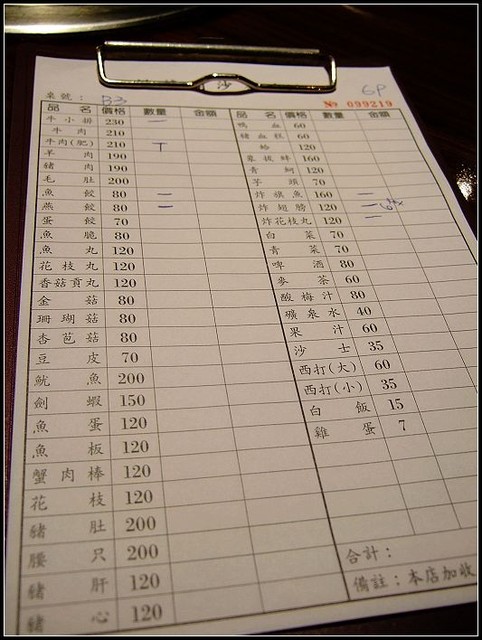 沙
桌號： B3
6P
№ 099219
品名 價格 數量 金額
牛小排 230 一
牛肉 210
牛肉(肥) 210 T
羊肉 190
豬肉 190
毛肚 200
魚餃 80 二
燕餃 80 二
蛋餃 70
魚脆 80
魚丸 120
花枝丸 120
香菇貢丸 120
金菇 80
珊瑚菇 80
杏芭菇 80
豆皮 70
魷魚 200
劍蝦 150
魚蛋 120
魚板 120
蟹肉棒 120
花枝 120
豬肚 200
腰只 200
豬肝 120
豬心 120
品名 價格 數量 金額
鴨血 60
豬血糕 60
蛤 120
120
青蚵 120
芋頭 70
炸旗魚 160 二
炸翅膀 120 二
炸花枝丸 120 一
白菜 70
青菜 70
啤酒 80
麥茶 60
酸梅汁 80
礦泉水 40
果汁 60
沙士 35
西打(大) 60
西打(小) 35
白飯 15
雞蛋 7
合計：
備註：本店加收